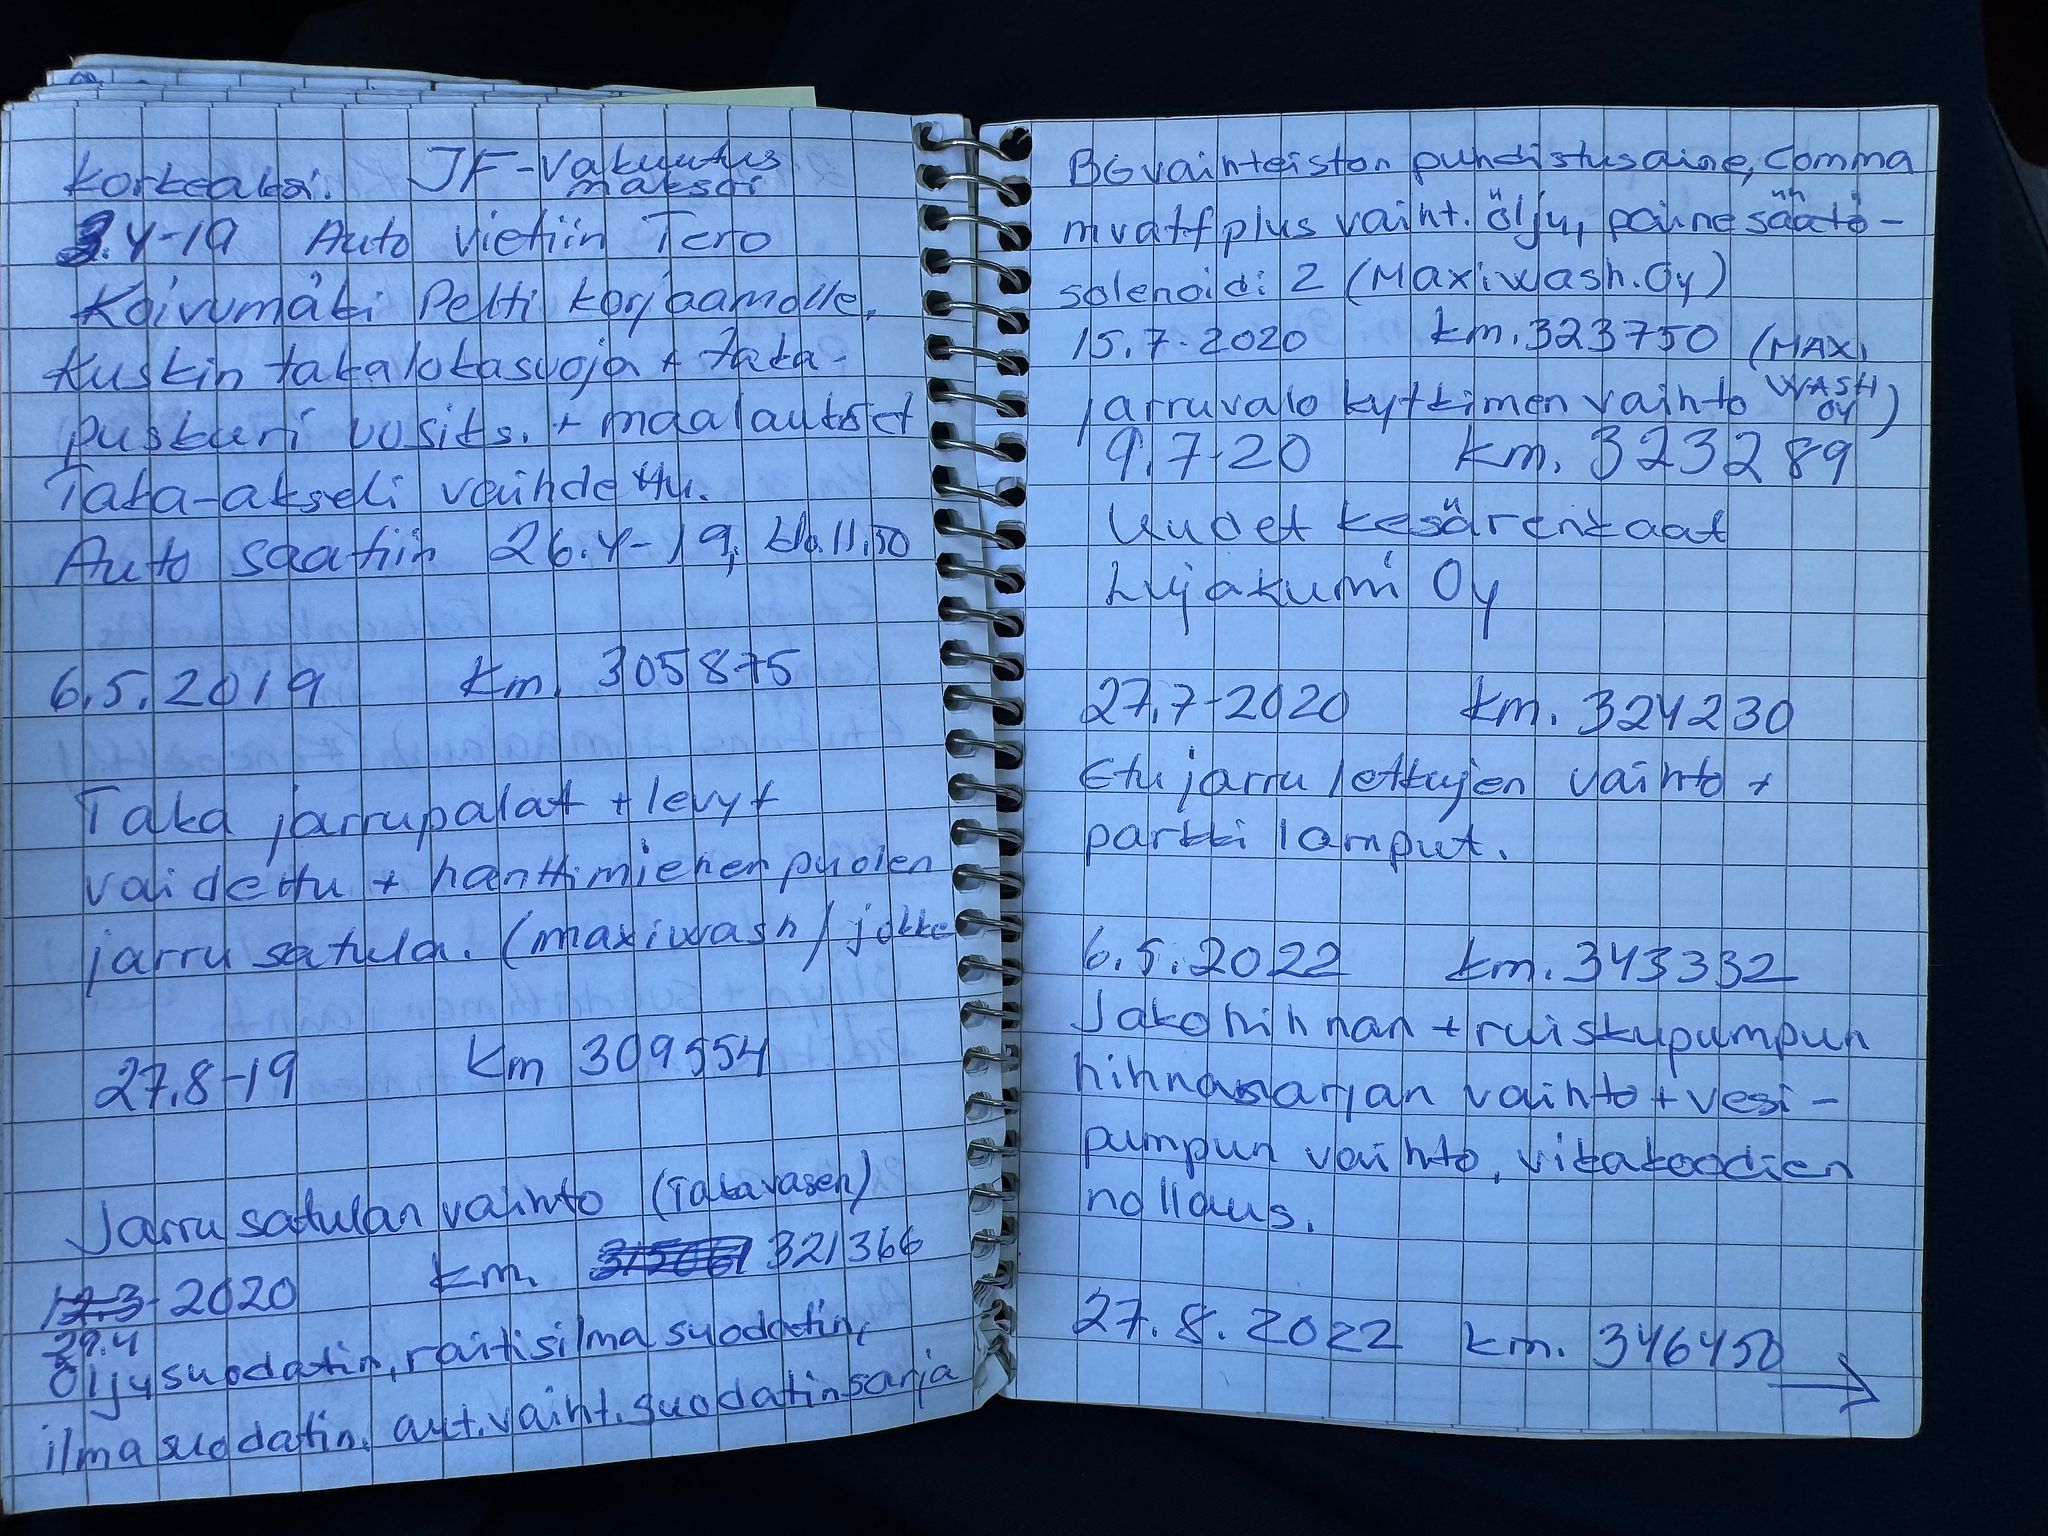 korkeaksi. IF-Vakuutus
maksoi
3.4-19 Auto vietiin Tero
Koivumäki Pelti korjaamolle.
Kuskin takalokasuoja + taka-
puskuri uusits. + maalaukset
Taka-akseli vaihdettu.
Auto saatiin 26.4-19, klo.11.50
6.5.2019 km. 305875
Taka jarrupalat + levyt
vaidettu + hanttimiehen puolen
jarru satula. (maxiwash/jokke
27.8-19 km 309554
Jarru satulan vaihto (Takavasen)
12.3-2020 km. 321366
29.4
Öljysuodatin, raitisilma suodatin,
ilmasuodatin. aut.vaiht.suodatinsarja
BG vaihteiston puhdistusaine, Comma
mvatf plus vaiht. öljy, paine säätö-
solenoidi 2 (Maxiwash.Oy)
15.7-2020 km.323750 (MAXI
WASH
OY)
jarruvalo kytkimen vaihto
9.7-20 km. 323289
Uudet kesärenkaat
Lujakumi Oy
27.7-2020 km. 324230
Etu jarru letkujen vaihto +
parkki lamput.
6.5.2022 km. 343332
Jakohihnan + ruiskupumpun
hihnasarjan vaihto + vesi-
pumpun vaihto, vikakoodien
nollaus.
27.8.2022 km. 346450